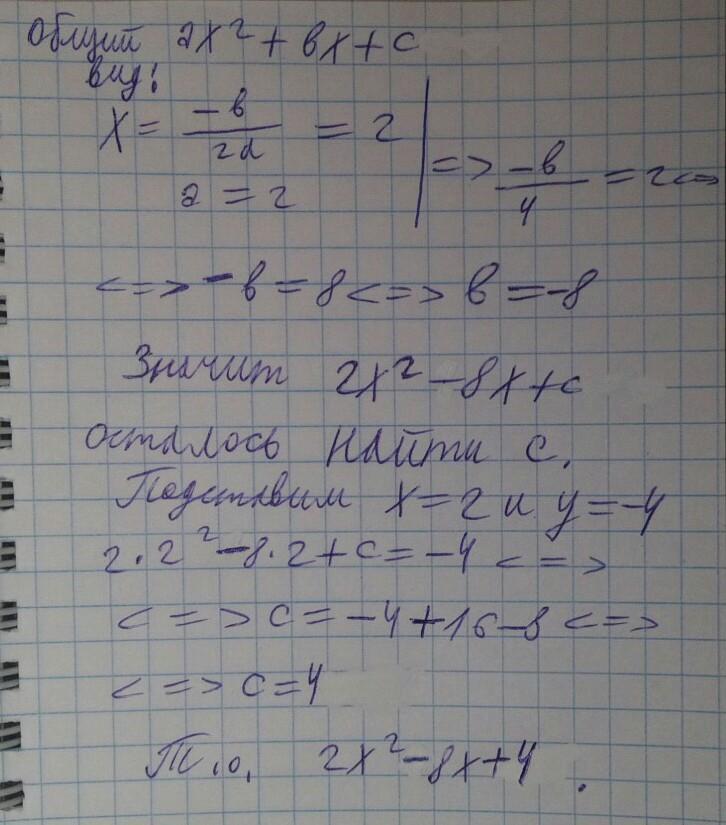 Общий ax² + bx + c
вид:
x = -b/2a = 2 | => -b/4 = 2 <=>
a = 2
<=> -b = 8 <=> b = -8
Значит 2x² - 8x + c
осталось найти c.
Подставим x = 2 и y = -4
2·2² - 8·2 + c = -4 <=>
<=> c = -4 + 16 - 8 <=>
<=> c = 4
Т.о. 2x² - 8x + 4.